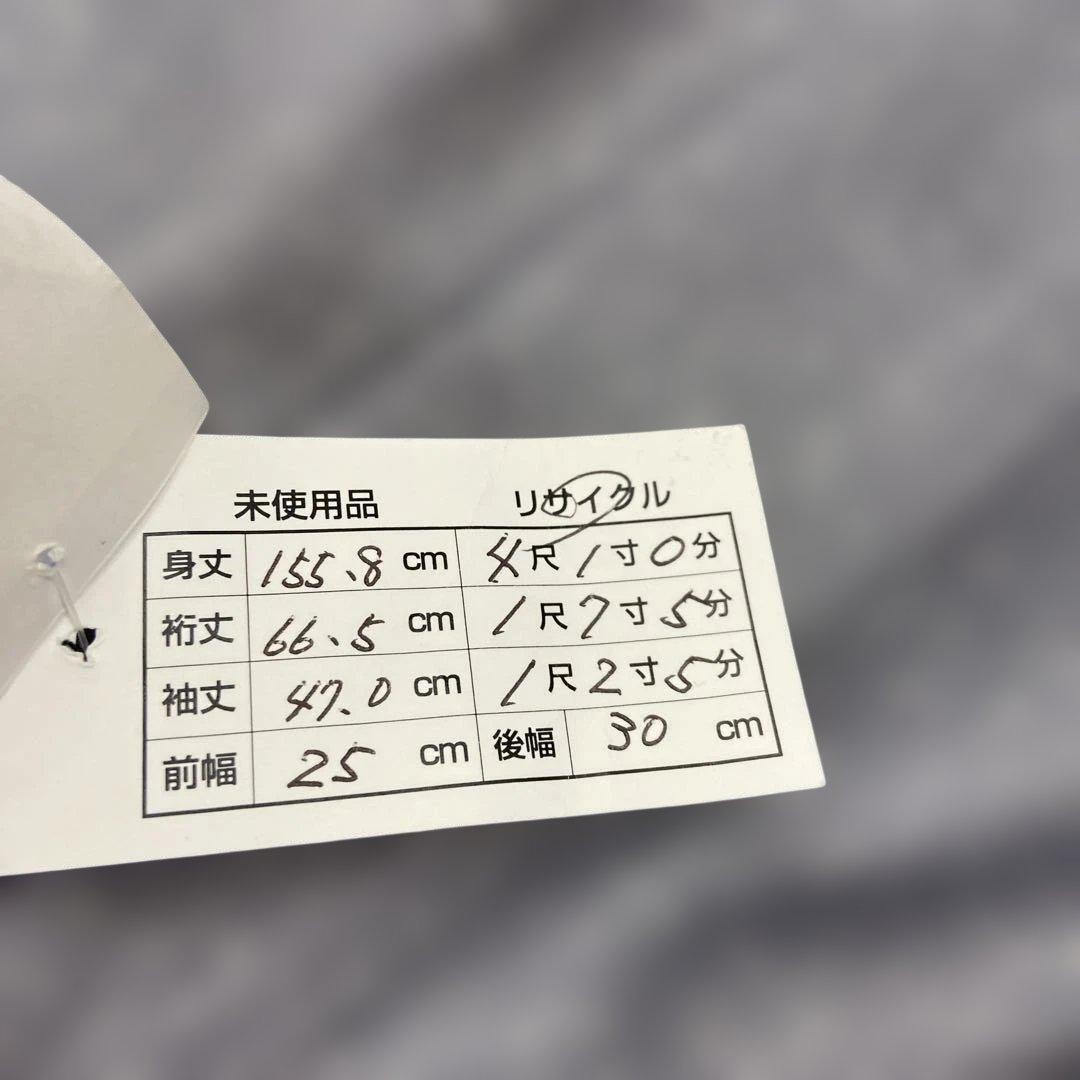 未使用品 リサイクル
身丈 155.8 cm 4尺1寸0分
裄丈 66.5 cm 1尺7寸5分
袖丈 47.0 cm 1尺2寸5分
前幅 25 cm 後幅 30 cm